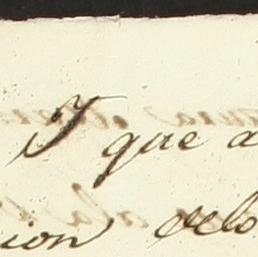 Y que a
cion delo